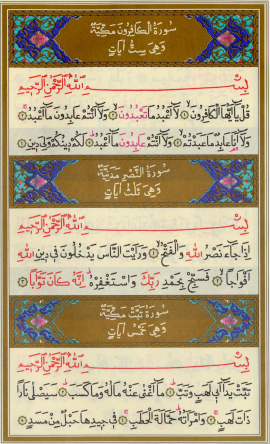 سُورَةُ الْكَافِرُونَ مَكِّيَّةٌ
وَهِيَ سِتُّ آيَاتٍ
بِسْمِ اللّٰهِ الرَّحْمٰنِ الرَّحِيمِ
قُلْ يَٓا اَيُّهَا الْكَافِرُونَۙ ﴿١﴾ لَٓا اَعْبُدُ مَا تَعْبُدُونَۙ ﴿٢﴾ وَلَٓا اَنْتُمْ عَابِدُونَ مَٓا اَعْبُدُۚ ﴿٣﴾
وَلَٓا اَنَا۬ عَابِدٌ مَا عَبَدْتُمْۙ ﴿٤﴾ وَلَٓا اَنْتُمْ عَابِدُونَ مَٓا اَعْبُدُۜ ﴿٥﴾ لَكُمْ دِينُكُمْ وَلِيَ دِينِ ﴿٦﴾
سُورَةُ النَّصْرِ مَدَنِيَّةٌ
وَهِيَ ثَلَاثُ آيَاتٍ
بِسْمِ اللّٰهِ الرَّحْمٰنِ الرَّحِيمِ
اِذَا جَٓاءَ نَصْرُ اللّٰهِ وَالْفَتْحُۙ ﴿١﴾ وَرَاَيْتَ النَّاسَ يَدْخُلُونَ فِي دِينِ اللّٰهِ
اَفْوَاجًاۙ ﴿٢﴾ فَسَبِّحْ بِحَمْدِ رَبِّكَ وَاسْتَغْفِرْهُۜ اِنَّهُ كَانَ تَوَّابًا ﴿٣﴾
سُورَةُ تَبَّتْ مَكِّيَّةٌ
وَهِيَ خَمْسُ آيَاتٍ
بِسْمِ اللّٰهِ الرَّحْمٰنِ الرَّحِيمِ
تَبَّتْ يَدَٓا اَبِي لَهَبٍ وَتَبَّۜ ﴿١﴾ مَٓا اَغْنٰى عَنْهُ مَالُهُ وَمَا كَسَبَۜ ﴿٢﴾ سَيَصْلٰى نَارًا
ذَاتَ لَهَبٍۚ ﴿٣﴾ وَامْرَاَتُهُۜ حَمَّالَةَ الْحَطَبِۚ ﴿٤﴾ فِي جِيدِهَا حَبْلٌ مِنْ مَسَدٍ ﴿٥﴾